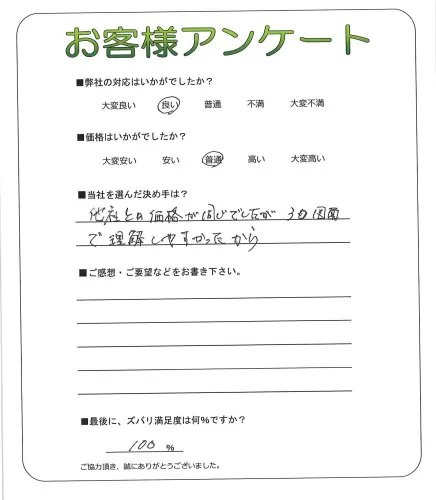 お客様アンケート
■弊社の対応はいかがでしたか？
大変良い 良い 普通 不満 大変不満
■価格はいかがでしたか？
大変安い 安い 普通 高い 大変高い
■当社を選んだ決め手は？
他社との価格が同じでしたが 3D図面
で理解しやすかったから
■ご感想・ご要望などをお書き下さい。
■最後に、ズバリ満足度は何%ですか？
100 %
ご協力頂き、誠にありがとうございました。